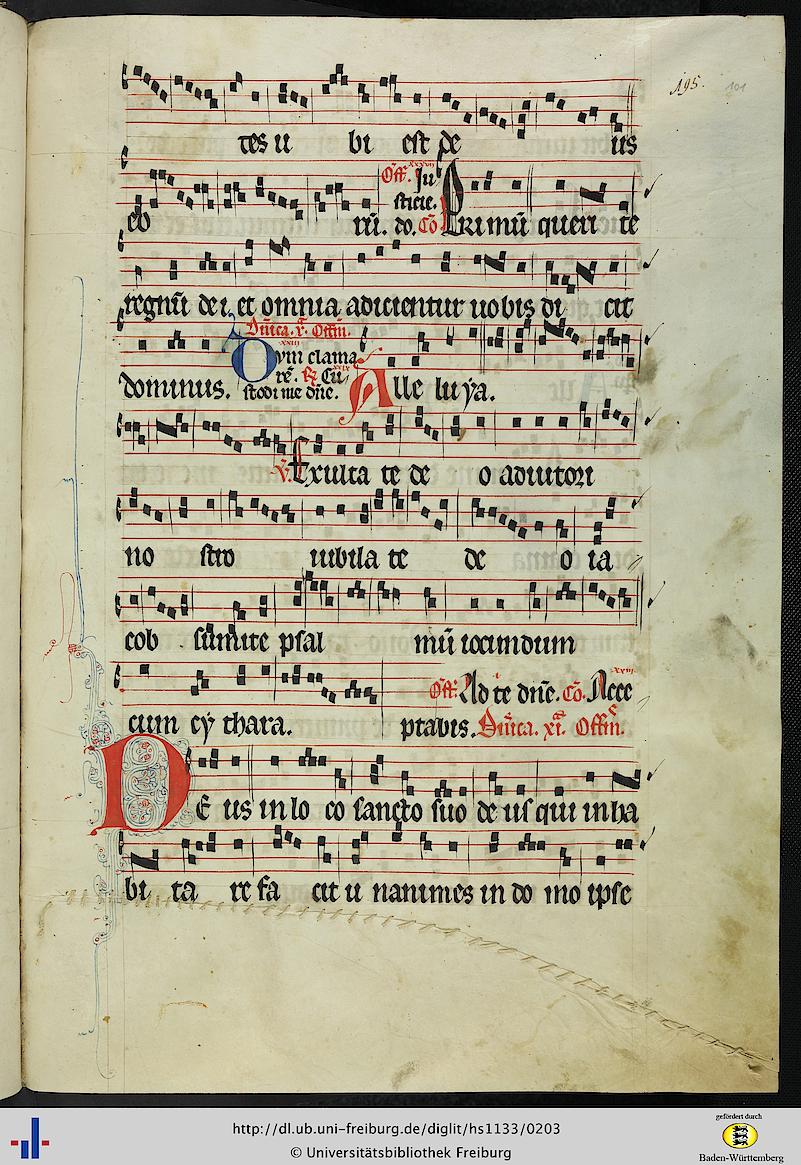 195. 101
tes u bi est de us
Off. Ju
sticie.
eo rū. do. Cō Primū queri te
regnū dei, et omnia adicientur uobis di cit
Dn̄ica. x. Offm̄.
Dum clama
rē. R Cu
dominus. stodi me dn̄e. Alle luya.
V. Exulta te de o adiutori
no stro iubila te de o ia
cob sumite psal mū iocundum
Off. Ad te dn̄e. Cō. Acce
cum cy thara. ptabis. Dn̄ica. xi. Offm̄.
De us in lo co sancto suo de us qui inha
bi ta re fa cit u nanimes in do mo ipse
http://dl.ub.uni-freiburg.de/diglit/hs1133/0203
© Universitätsbibliothek Freiburg
gefördert durch
Baden-Württemberg